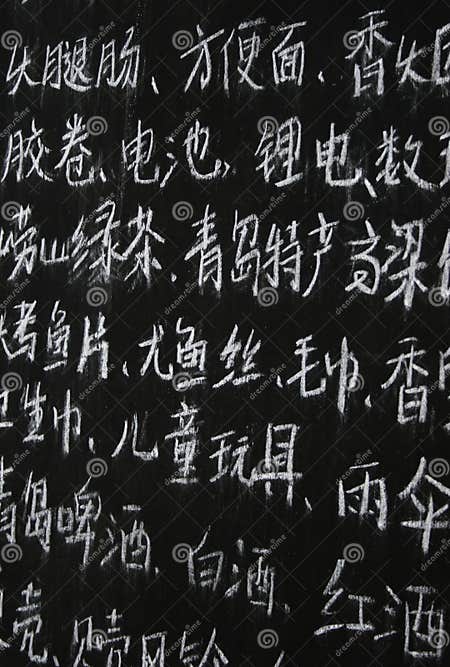 火腿肠、方便面、香火
胶卷、电池、锂电、数
崂山绿茶、青岛特产高粱
烤鱼片、尤鱼丝、毛巾、香
卫生巾、儿童玩具、雨伞
青岛啤酒、白酒、红酒
壳、贝壳风铃